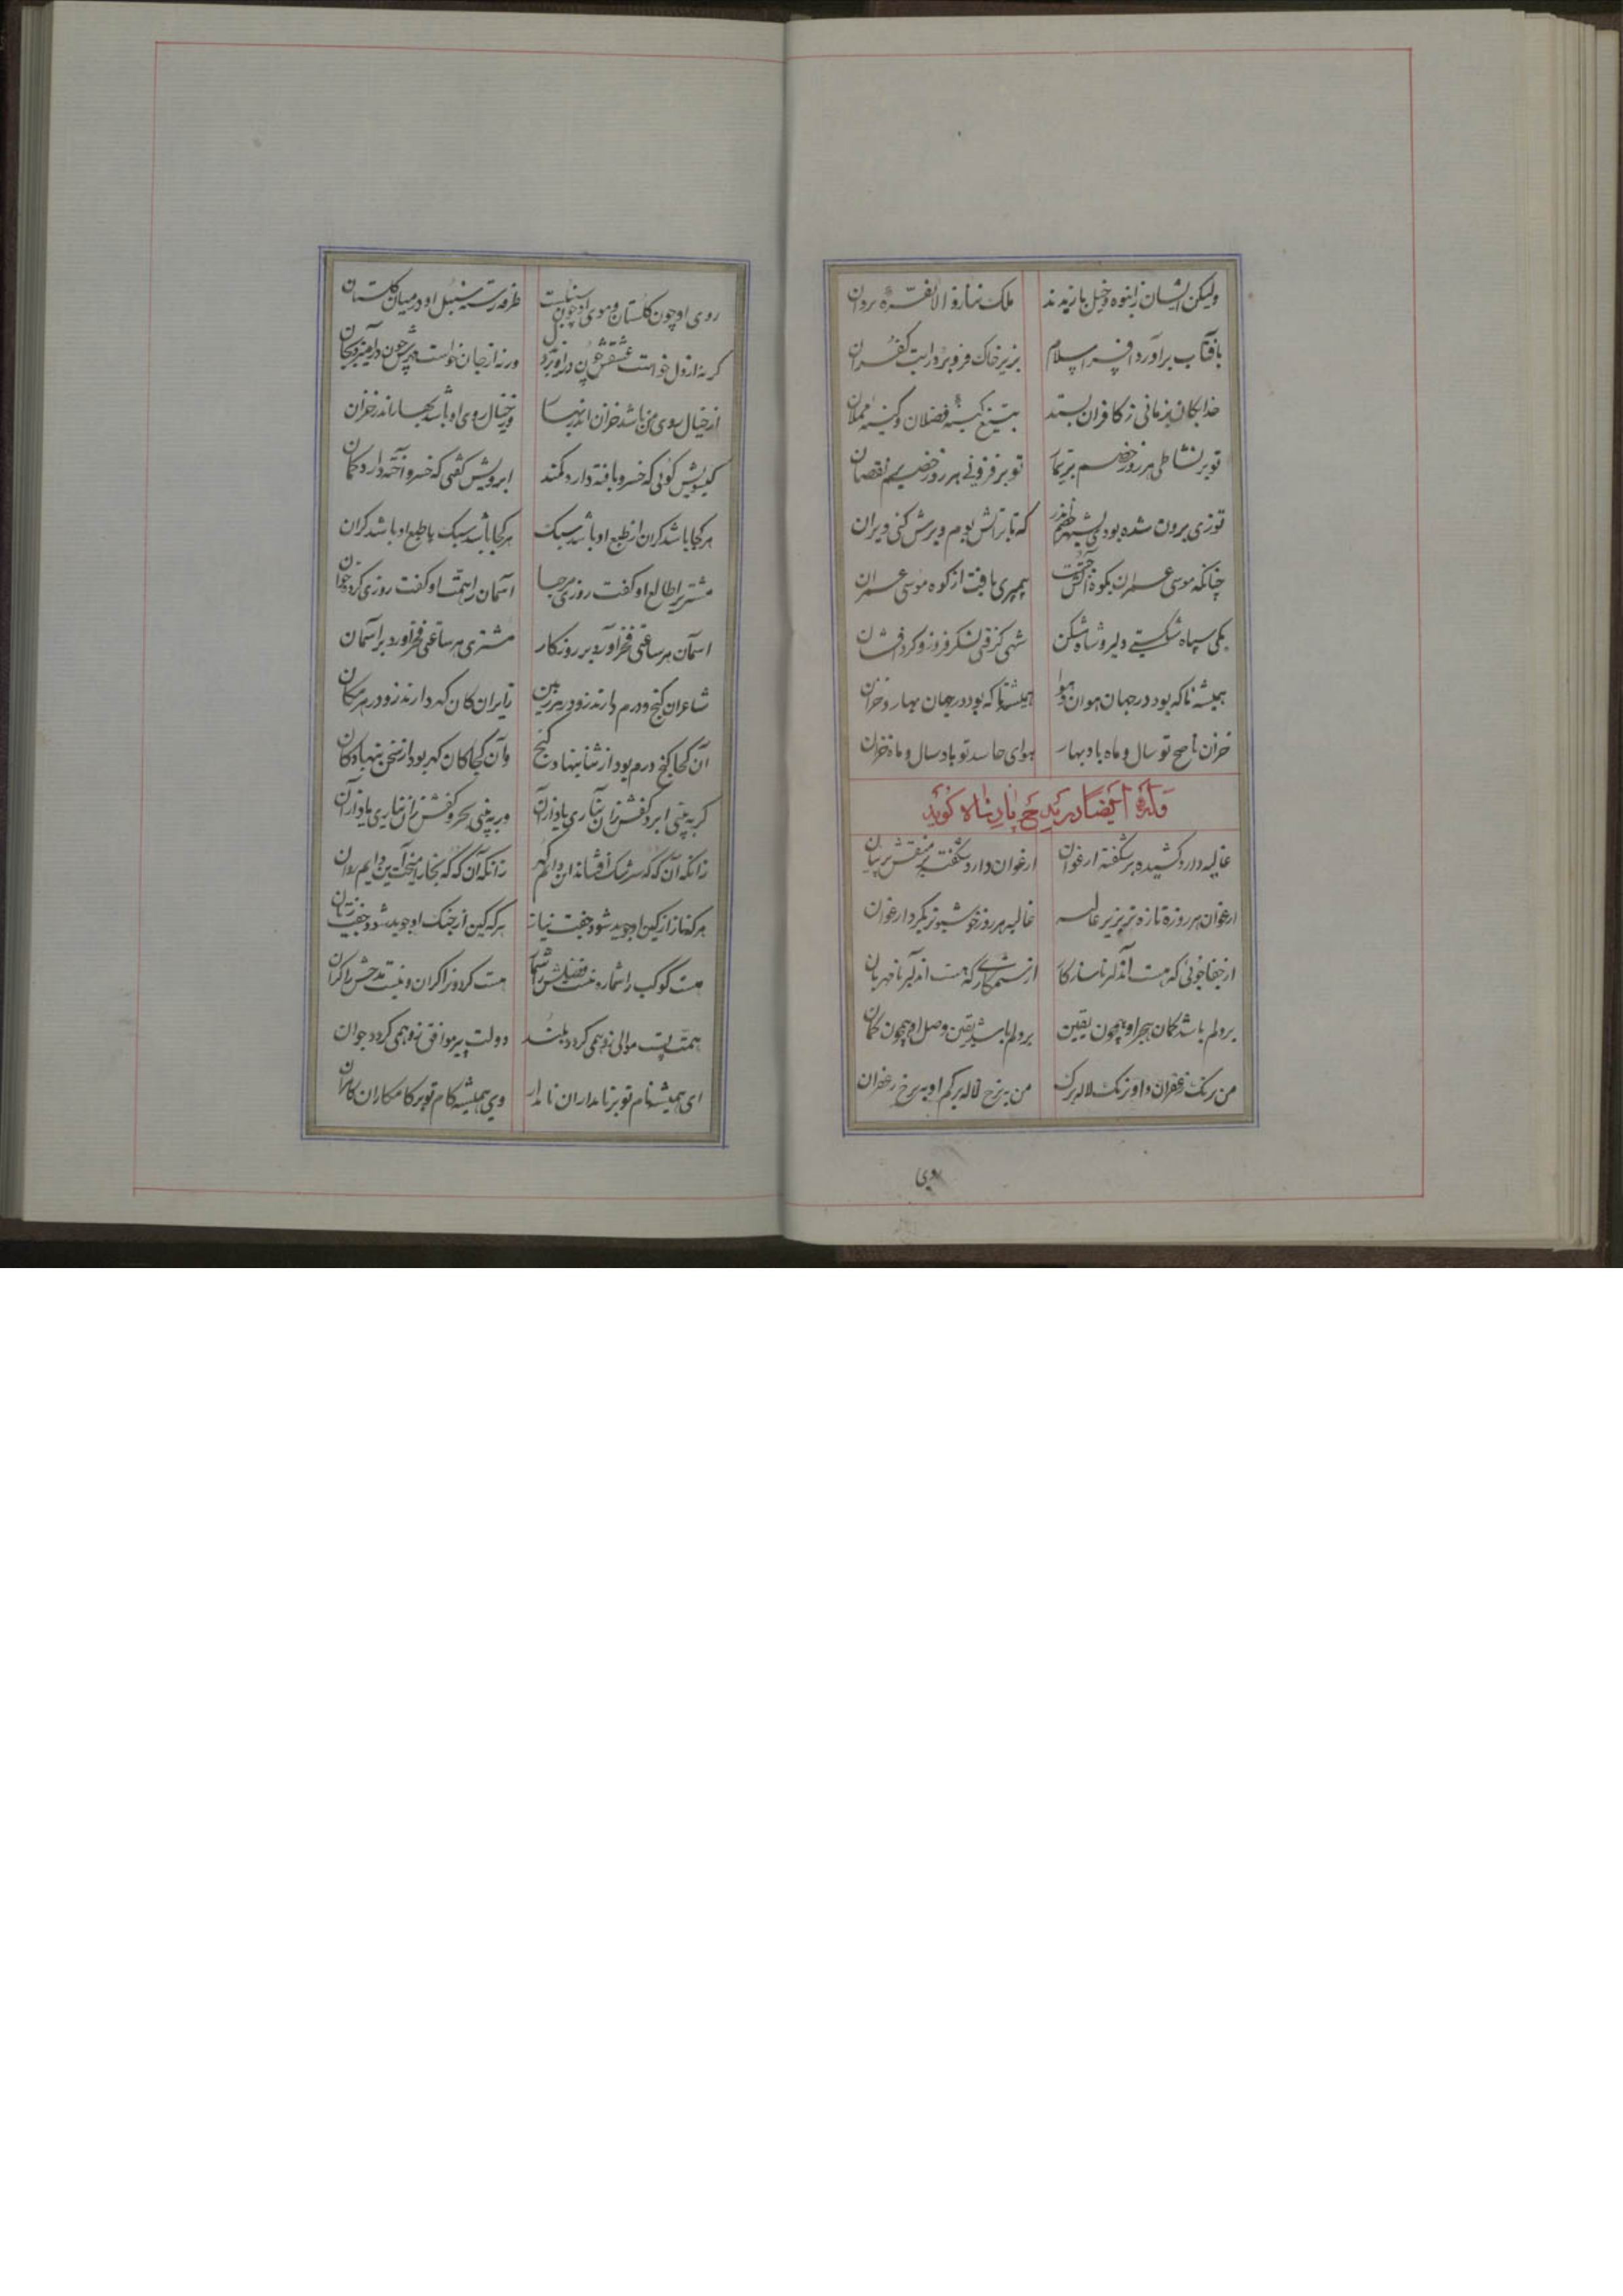 ولیکن ایشان زانبوه و خیل بازندند ملک نیارد الا بفره بردان
بآفتاب برآورد افسر اسلام بزیر خاک فرو برد رایت کفران
خدایگان بزمانی ز کافران بستد بتیغ کینه فضلان و کینه مملان
تو بر نشاطی هر روز خصم بر تیمار تو بر فزونی هر روز خصم بر نقصان
توزی برون شده بودی بشهر خصم اندر که تا بر آتش بوم و برش کنی ویران
چنانکه موسی عمران بکوه آتش جست پیمبری یافت از کوه موسی عمران
یکی سپاه شکستی دلیر و شاه شکن شهی گرفتی لشکر فروز و گرد افشان
همیشه تا که بود در جهان هوان و هوا همیشه تا که بود در جهان بهار و خزان
خزان ناصح تو سال و ماه باد بهار هوای حاسد تو باد سال و ماه خزان
وله ایضا در مدح پادشاه گوید
غالیه دارد کشیده بر شکفته ارغوان ارغوان دارد شکفته بر منقش پرنیان
ارغوان هر روز تازه تر بزیر غالیه غالیه هر روز خوشبوتر بگرد ارغوان
از جفاجوئی که هست آن دلبر ناسازگار از ستمکاری که هست آن دلبر نامهربان
بر دلم باشد گمان هجر او همچون یقین بر دلم باشد یقین وصل او همچون گمان
من برنگ زعفران و او برنگ لاله برگ من برخ لاله برگم او برخ زعفران
روی
روی او چون گلستان و موی او چون سنبلست طرفه رسته سنبل او در میان گلستان
گر نه از دل خواست عشقش چون در آویزد بدل ور نه از جان خواست مهرش چون در آمیزد بجان
از خیال روی من باشد خزان اندر بهار وز خیال روی او باشد بهار اندر خزان
گیسویش گوئی که خسرو بافته دارد کمند ابرویش گفتی که خسرو آخته دارد کمان
هر کجا باشد گران از طبع او باشد سبک هر کجا باشد سبک با طبع او باشد گران
مشتری را طالع او گفت روزی مرحبا آسمان را همت او گفت روزی گرد جوان
آسمان هر ساعتی فخر آورد بر روزگار مشتری هر ساعتی فخر آورد بر آسمان
شاعران گنج و درم دارند زو در هر زمین زایران کان گهر دارند زو در هر مکان
آن کجا گنج درم بود از ثنا بنهاد گنج وان کجا کان گهر بود از سخن بنهاد کان
گر به بینی ابر و کفش زان نثاری یاد آر ور به بینی بحر و کفش زان نثاری یاد آر
زانکه آن گه گه سرشک افشاند این دایم گهر زانکه آن گه گه بخار انگیخت این دایم روان
هر که ناز از کین او جوید شود جفت نیاز هر که کین از جنگ او جوید شود جفت زیان
هست کوکب را شماره نیست فضلش را شمار هست گردون را کران و نیست مدحش را کران
همت پست موالی زو همی گردد بلند دولت پیر موافق زو همی گردد جوان
ای همیشه نام تو بر نامداران نامدار وی همیشه کام تو بر کامکاران کامران